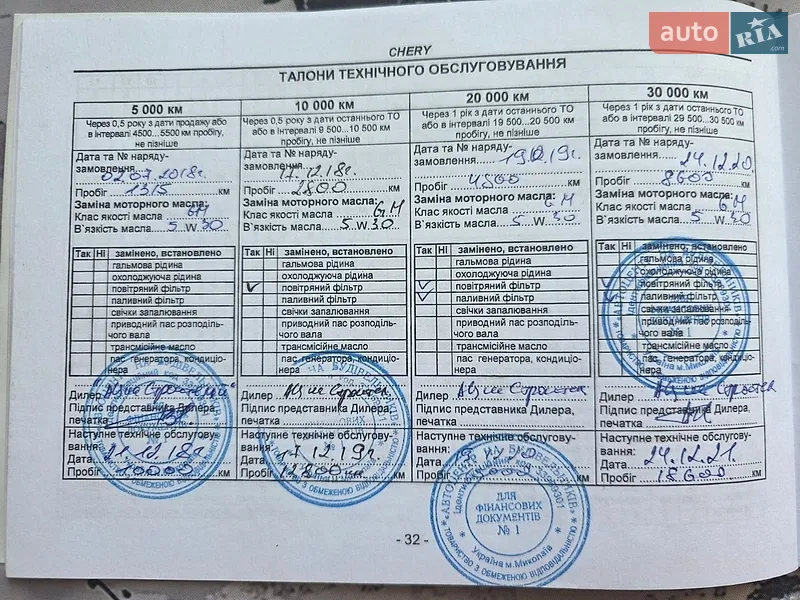 auto RIA .com
CHERY
ТАЛОНИ ТЕХНІЧНОГО ОБСЛУГОВУВАННЯ
5 000 км
Через 0,5 року з дати продажу або
в інтервалі 4500...5500 км пробігу,
не пізніше
Дата та № наряду-
замовлення 02.07.2018г.
Пробіг 1315 км
Заміна моторного масла:
Клас якості масла GM
В`язкість масла 5 W 30
Так Ні замінено, встановлено
гальмова рідина
охолоджуюча рідина
повітряний фільтр
паливний фільтр
свічки запалювання
приводний пас розподіль-
чого вала
трансмісійне масло
пас генератора, кондиціо-
нера
Дилер
Підпис представника Дилера,
печатка
Наступне технічне обслугову-
вання:
Дата 21.12.18г.
Пробіг 10000 км
10 000 км
Через 0,5 року з дати останнього ТО
або в інтервалі 9 500...10 500 км
пробігу, не пізніше
Дата та № наряду-
замовлення 17.12.18г.
Пробіг 2800 км
Заміна моторного масла:
Клас якості масла GM
В`язкість масла 5 W 30
Так Ні замінено, встановлено
гальмова рідина
охолоджуюча рідина
повітряний фільтр
паливний фільтр
свічки запалювання
приводний пас розподіль-
чого вала
трансмісійне масло
пас генератора, кондиціо-
нера
Дилер
Підпис представника Дилера,
печатка
Наступне технічне обслугову-
вання:
Дата 17.12.19г.
Пробіг км
20 000 км
Через 1 рік з дати останнього ТО
або в інтервалі 19 500...20 500 км
пробігу, не пізніше
Дата та № наряду-
замовлення
Пробіг 4500 км
Заміна моторного масла:
Клас якості масла GM
В`язкість масла 5 W 30
Так Ні замінено, встановлено
гальмова рідина
охолоджуюча рідина
повітряний фільтр
паливний фільтр
свічки запалювання
приводний пас розподіль-
чого вала
трансмісійне масло
пас генератора, кондиціо-
нера
Дилер
Підпис представника Дилера,
печатка
Наступне технічне обслугову-
вання:
Дата
Пробіг км
30 000 км
Через 1 рік з дати останнього ТО
або в інтервалі 29 500...30 500 км
пробігу, не пізніше
Дата та № наряду-
замовлення 24.12.20
Пробіг 8600 км
Заміна моторного масла:
Клас якості масла GM
В`язкість масла 5 W 30
Так Ні замінено, встановлено
гальмова рідина
охолоджуюча рідина
повітряний фільтр
паливний фільтр
свічки запалювання
приводний пас розподіль-
чого вала
трансмісійне масло
пас генератора, кондиціо-
нера
Дилер
Підпис представника Дилера,
печатка
Наступне технічне обслугову-
вання:
Дата 24.12.21
Пробіг км
ДЛЯ
ФІНАНСОВИХ
ДОКУМЕНТІВ
№ 1
Україна м.Миколаїв
ТОВАРИСТВО З ОБМЕЖЕНОЮ ВІДПОВІДАЛЬНІСТЮ
- 32 -